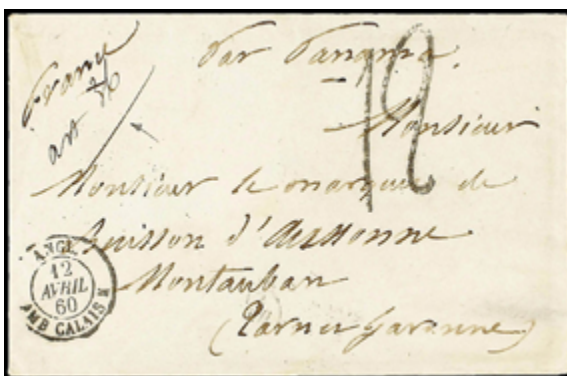 France
art
par Panama
12
Monsieur
Monsieur le marquis de
Buisson d'Aussonne
Montauban
(Tarn et Garonne)
ANGL.
12
AVRIL
60
AMB CALAIS